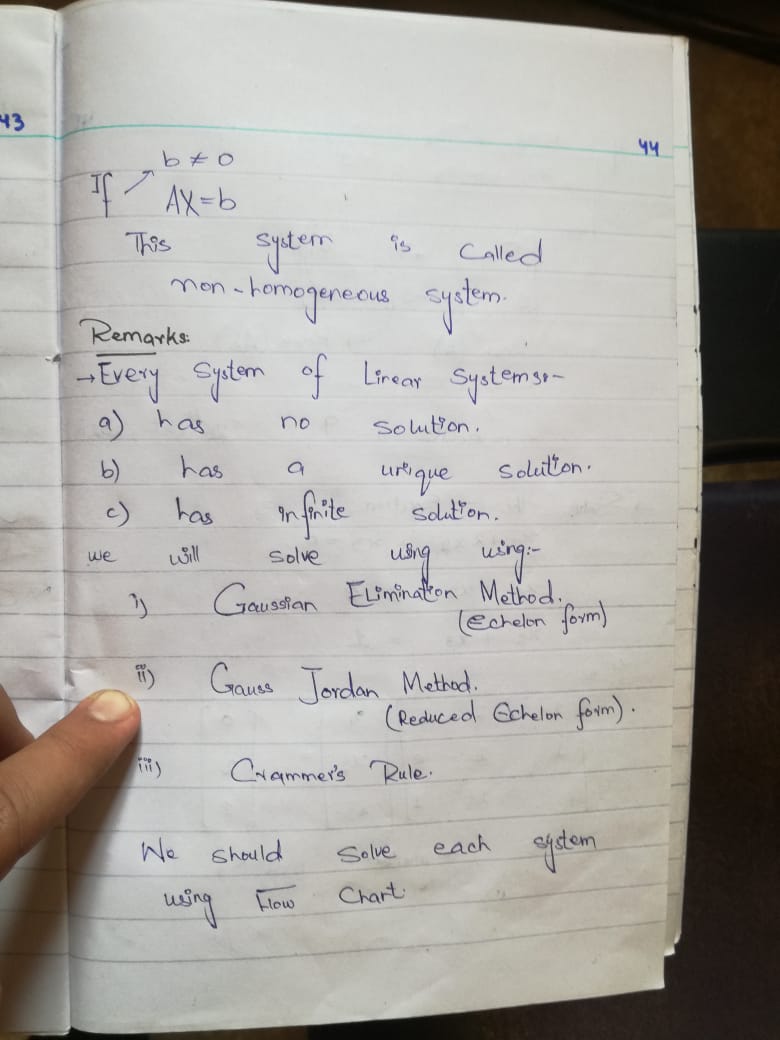 43
44
b ≠ 0
If ↗ AX=b
This system is called
non-homogeneous system.
Remarks:
→ Every System of Linear Systems:-
a) has no solution.
b) has a unique solution.
c) has infinite solution.
we will solve using using:-
i) Gaussian Elimination Method.
(Echelon form)
ii) Gauss Jordan Method.
(Reduced Echelon form).
iii) Crammer's Rule.
We should solve each system
using Flow Chart.